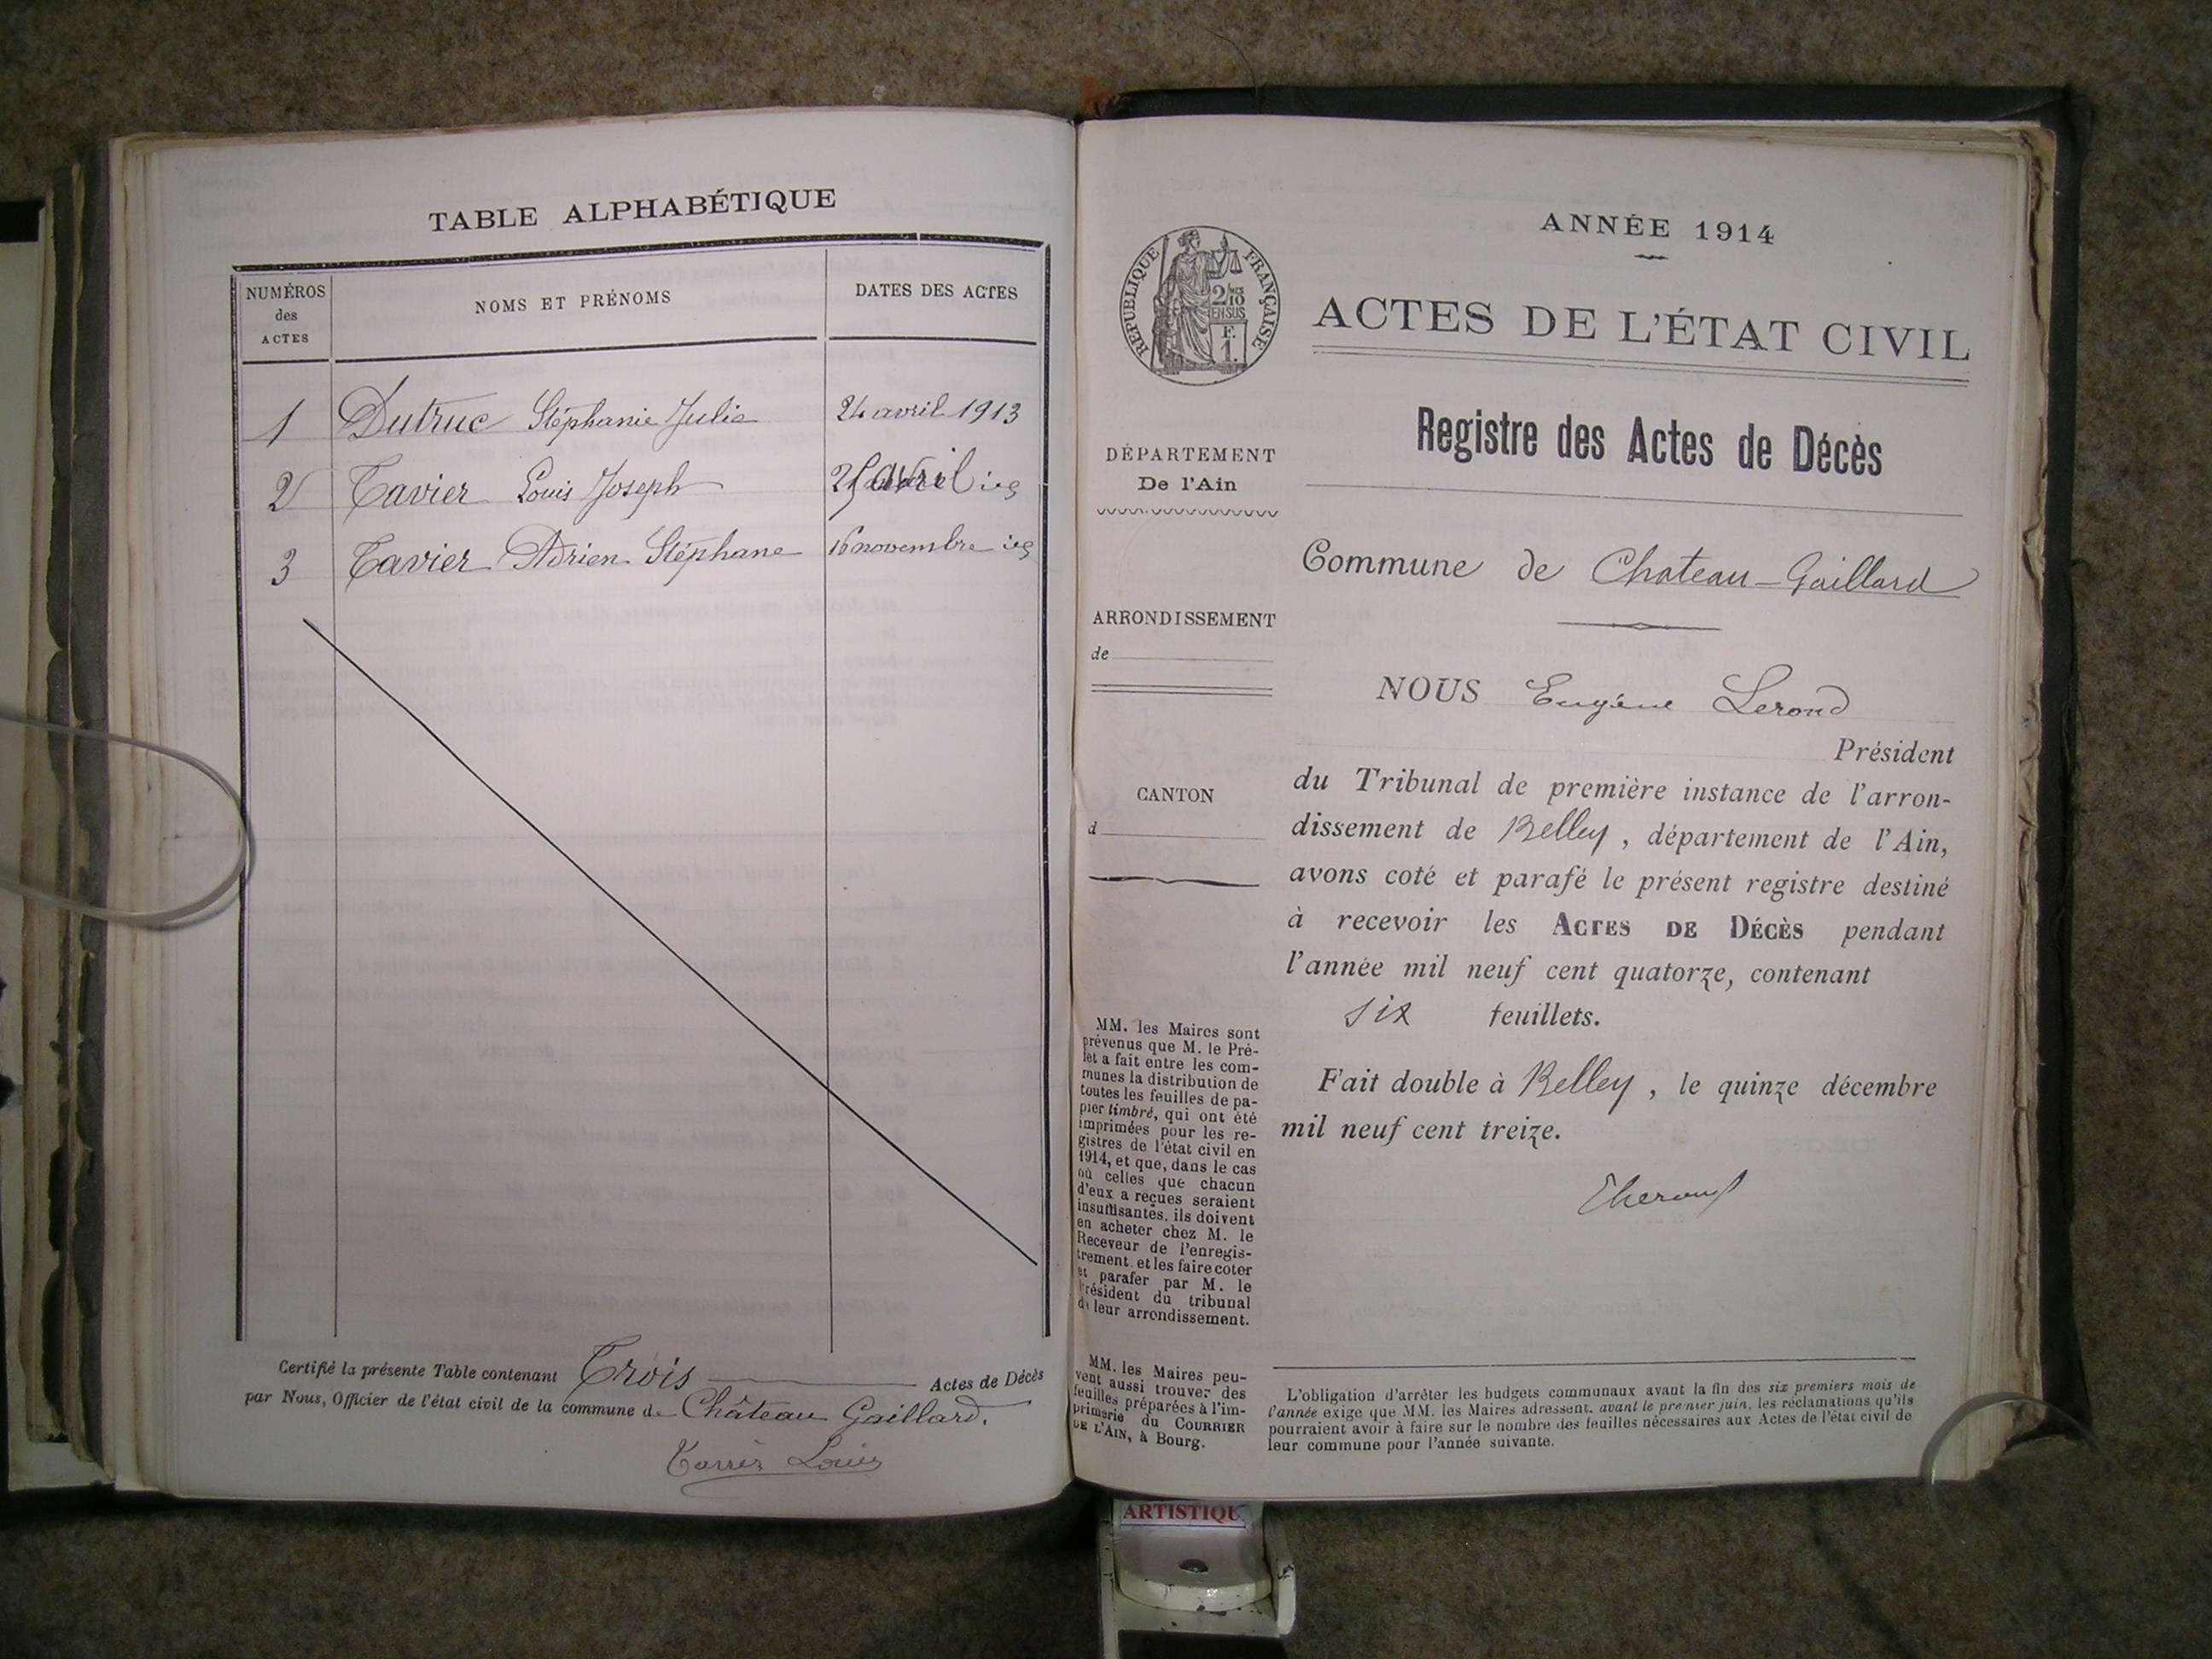 TABLE ALPHABÉTIQUE
NUMÉROS
des
ACTES
NOMS ET PRÉNOMS
DATES DES ACTES
1 Dutruc Stéphanie Julie 24 avril 1913
2 Tavier Louis Joseph avril
3 Tavier Adrien Stéphane 16 novembre
Certifié la présente Table contenant Trois Actes de Décès
par Nous, Officier de l'état civil de la commune de Château Gaillard.
Louis
ANNÉE 1914
RÉPUBLIQUE FRANÇAISE
2/10
EN SUS
F.
1.
ACTES DE L'ÉTAT CIVIL
Registre des Actes de Décès
DÉPARTEMENT
De l'Ain
Commune de Chateau-Gaillard
ARRONDISSEMENT
de
NOUS Eugène Lerond
Président
CANTON
d
du Tribunal de première instance de l'arron-
dissement de Belley, département de l'Ain,
avons coté et parafé le présent registre destiné
à recevoir les ACTES DE DÉCÈS pendant
l'année mil neuf cent quatorze, contenant
six feuillets.
Fait double à Belley, le quinze décembre
mil neuf cent treize.
MM. les Maires sont
prévenus que M. le Pré-
fet a fait entre les com-
munes la distribution de
toutes les feuilles de pa-
pier timbré, qui ont été
imprimées pour les re-
gistres de l'état civil en
1914, et que, dans le cas
où celles que chacun
d'eux a reçues seraient
insuffisantes, ils doivent
en acheter chez M. le
Receveur de l'enregis-
trement et les faire coter
et parafer par M. le
Président du tribunal
de leur arrondissement.
MM. les Maires peu-
vent aussi trouver des
feuilles préparées à l'im-
primerie du COURRIER
DE L'AIN, à Bourg.
L'obligation d'arrêter les budgets communaux avant la fin des six premiers mois de
l'année exige que MM. les Maires adressent, avant le premier juin, les réclamations qu'ils
pourraient avoir à faire sur le nombre des feuilles nécessaires aux Actes de l'état civil de
leur commune pour l'année suivante.
ARTISTIQU